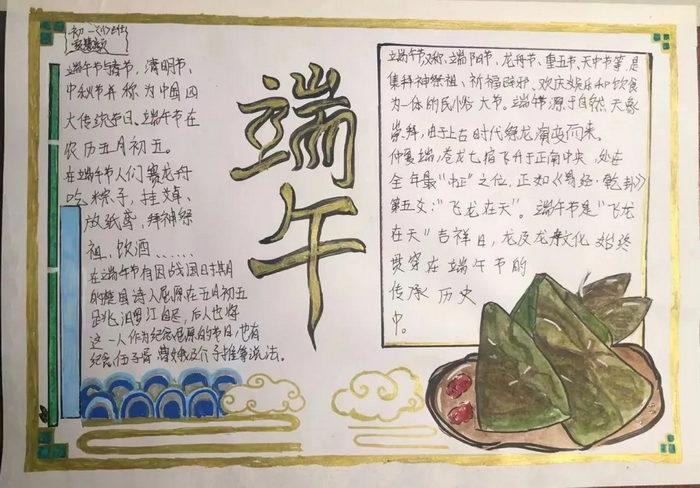 初一(1)班
端午节与春节、清明节、
中秋节并称为中国四
大传统节日。端午节在
农历五月初五。
在端午节人们赛龙舟
吃粽子,挂艾草、
放纸鸢,拜神祭
祖、饮酒……
在端午节有因战国时期
的楚国诗人屈原在五月初五
跳汨罗江自尽,后人也将
这一人作为纪念屈原的节日,也有
纪念伍子胥、曹娥及介子推等说法。
端午
端午节又称、端阳节、龙舟节、重五节、天中节等是
集拜神祭祖、祈福辟邪、欢庆娱乐和饮食
为一体的民俗大节。端午源于自然天象
崇拜,由上古时代祭龙演变而来。
仲夏端,苍龙七宿飞升于正南中央,处在
全年最“中正”之位,正如《易经·乾卦》
第五爻:“飞龙在天”。端午节是“飞龙
在天”吉祥日,龙及龙舟文化始终
贯穿在端午节的
传承历史
中。